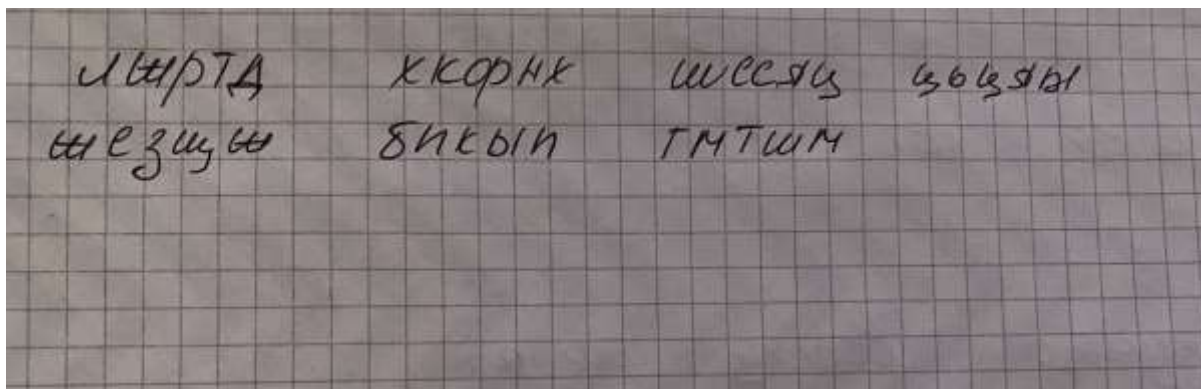 лжртд ххфнх шссяц цьцяы
жезщж бпкып гмтшм